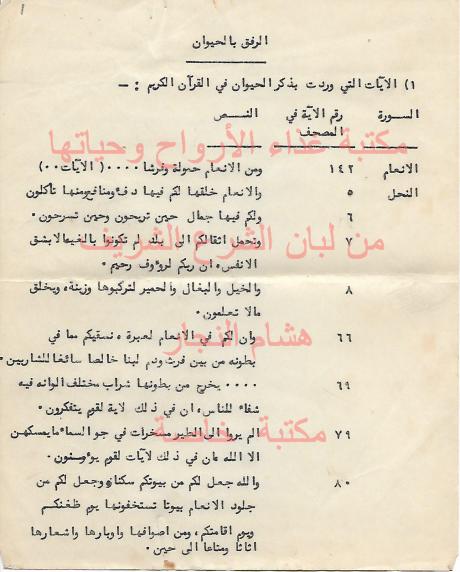 الرفق بالحيوان
١) الآيات التي وردت بذكر الحيوان في القرآن الكريم : –
السورة رقم الآية في المصحف النــص
مكتبة غذاء الأرواح وحياتها
الانعام ١٤٢ ومن الانعام حمولة وفرشا ٠٠٠٠( الآيات٠٠)
النحل ٥ والانعام خلقها لكم فيها دفء ومنافع ومنها تأكلون
٦ ولكم فيها جمال حين تريحون وحين تسرحون٠
من لبان الشرع الشريف
٧ وتحمل اثقالكم الى بلد لم تكونوا بالغيه الا بشق
الانفس، ان ربكم لرؤوف رحيم٠
٨ والخيل والبغال والحمير لتركبوها وزينة، ويخلق
مالا تعلمون٠
هشام النجار
٦٦ وان لكم في الانعام لعبرة ، نسقيكم مما في
بطونه من بين فرث ودم لبنا خالصا سائغا للشاربين٠
٦٩ ٠٠٠٠ يخرج من بطونها شراب مختلف الوانه فيه
شفاء للناس، ان في ذلك لاية لقوم يتفكرون٠
مكتبة خاصة
٧٩ الم يروا الى الطير مسخرات في جو السماء مايمسكهن
الا الله ، ان في ذلك لآيات لقوم يؤمنون٠
٨٠ والله جعل لكم من بيوتكم سكنا، وجعل لكم من
جلود الانعام بيوتا تستخفونها يوم ظعنكم
ويوم اقامتكم، ومن اصوافها واوبارها واشعارها
اثاثا ومتاعا الى حين٠